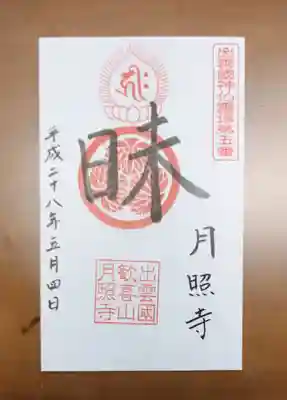 出雲國神仏霊場第五番
月照寺
昧
出雲國
歡喜山
月照寺
平成二十八年五月四日